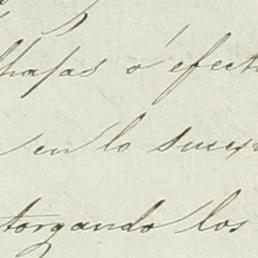 alhajas ó efect
en lo suces
torgando los